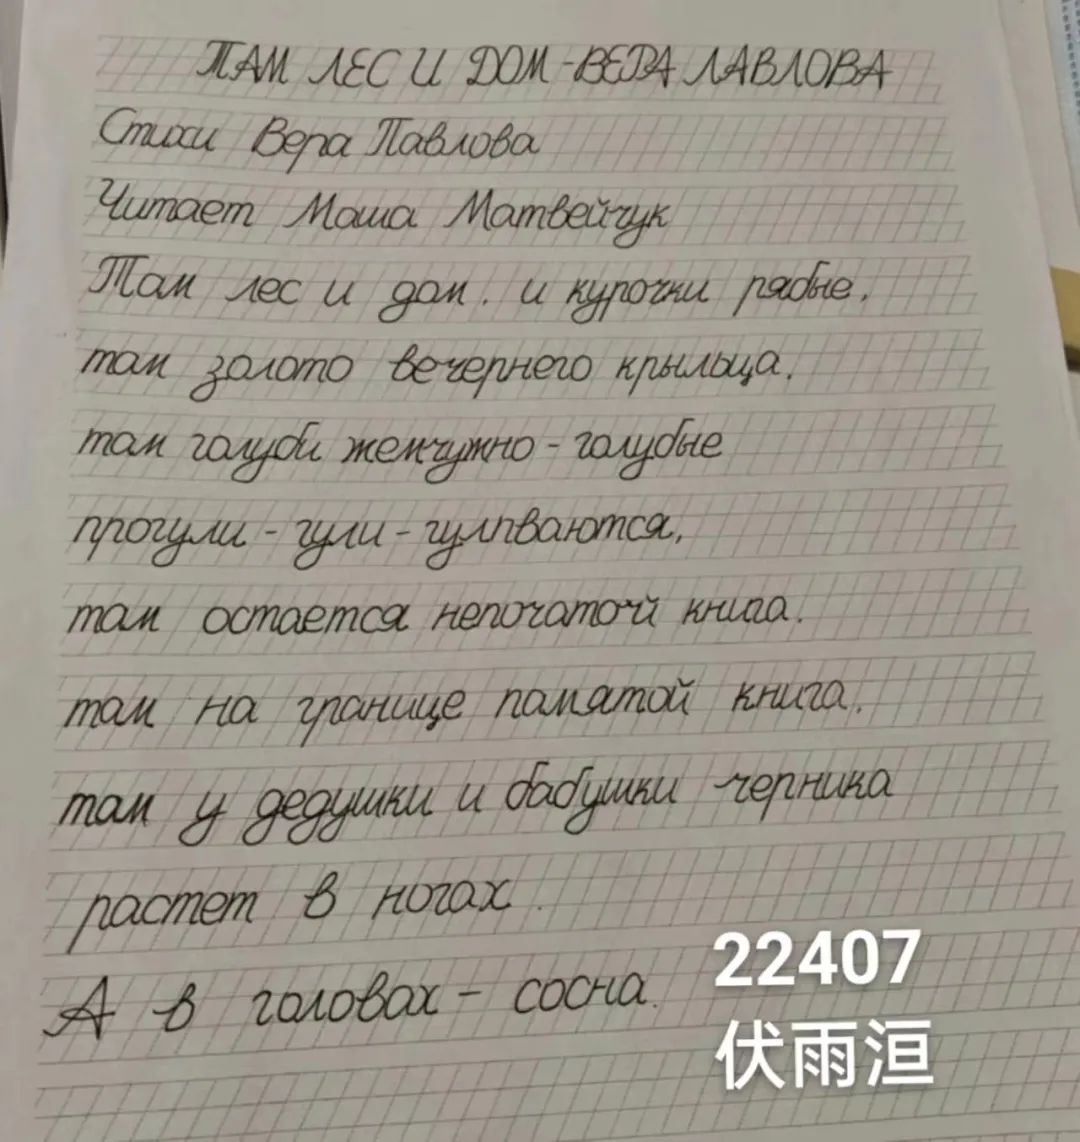 ТАМ ЛЕС И ДОМ-ВЕРА ЛАВЛОВА
Стихи Вера Павлова
Читает Маша Матвейчук
Там лес и дом. и курочки рябые.
там золото вечернего крыльца.
там голуби жемчужно-голубые
прогули-гули-гулпваются,
там остается непочаточй книга.
там на границе памятой книга.
там у дедушки и бабушки черника
растет в ногах.
А в головах- сосна.
22407
伏雨洹